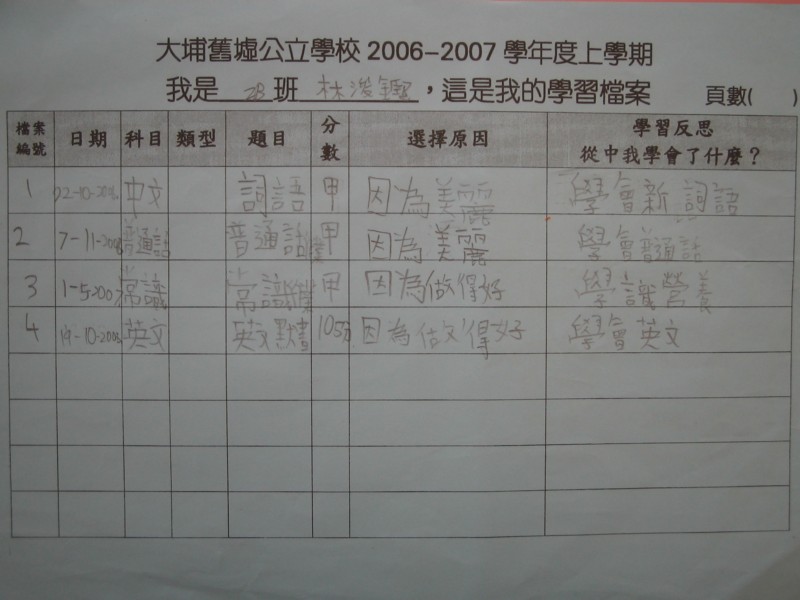 大埔舊墟公立學校 2006-2007 學年度上學期
我是 2B 班 林浚鏗，這是我的學習檔案 頁數( )
檔案編號 日期 科目 類型 題目 分數 選擇原因 學習反思 從中我學會了什麼？
1 中文 詞語 甲 因為美麗 學會新詞語
2 7-11-2006 普通話 普通話 甲 因為美麗 學會普通話
3 1-5-2007 常識 常識 甲 因為做得好 學識營養
4 19-10-2006 英文 英文默書 105分 因為做得好 學會英文